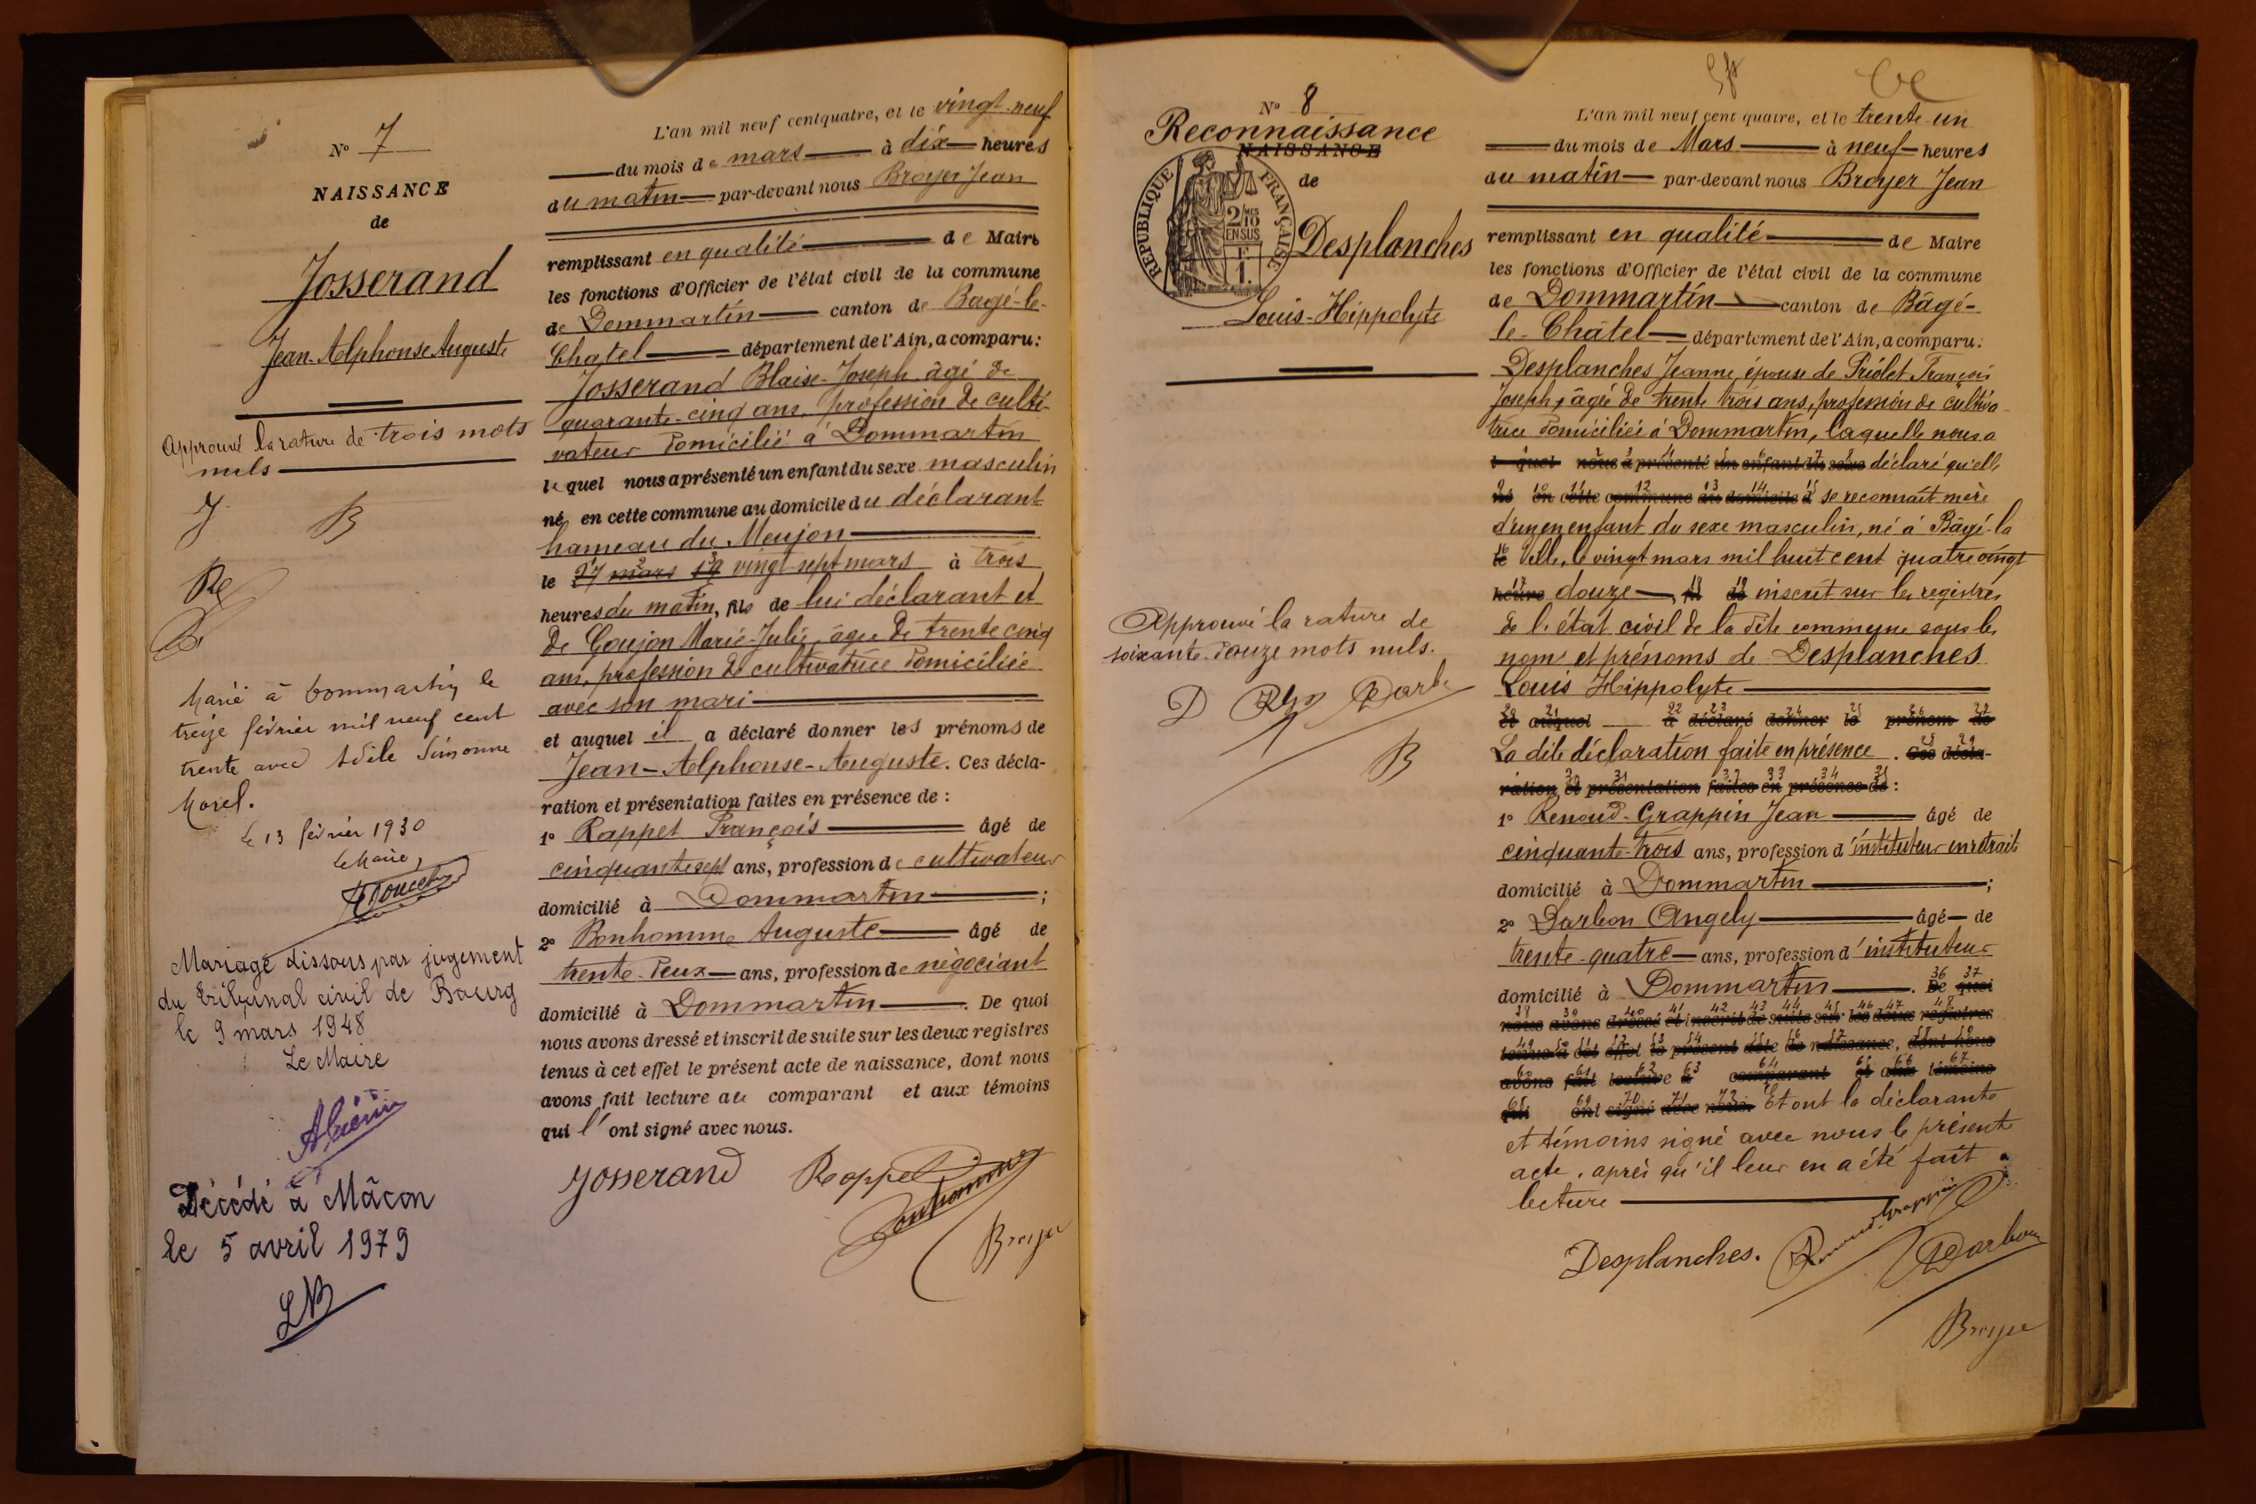 N° 7
NAISSANCE
de
Josserand
Jean-Alphonse Auguste
Approuvé la rature de trois mots
nuls
J. B
Marié à Dommartin le
treize février mil neuf cent
trente avec Adèle Simonne
Morel.
Le 13 février 1930
Le Maire,
Mariage dissous par jugement
du tribunal civil de Bourg
le 9 mars 1948
Le Maire
Décédé à Mâcon
le 5 avril 1979
L'an mil neuf cent quatre, et le vingt-neuf
du mois de mars à dix heures
du matin par-devant nous Broyer Jean
remplissant en qualité de Maire
les fonctions d'Officier de l'état civil de la commune
de Dommartin canton de Bagé-le-
Chatel département de l'Ain, a comparu:
Josserand Blaise-Joseph âgé de
quarante-cinq ans, profession de culti-
vateur domicilié à Dommartin
lequel nous a présenté un enfant du sexe masculin
né en cette commune au domicile du déclarant
hameau du Meujon
le 27 mars 19 vingt-sept mars à trois
heures du matin, fils de lui déclarant et
de Goujon Marie-Julie, âgée de trente cinq
ans, profession de cultivatrice domiciliée
avec son mari
et auquel il a déclaré donner les prénoms de
Jean-Alphonse-Auguste. Ces décla-
ration et présentation faites en présence de :
1° Rappet François âgé de
cinquante sept ans, profession de cultivateur
domicilié à Dommartin ;
2° Bonhomme Auguste âgé de
trente-deux ans, profession de négociant
domicilié à Dommartin . De quoi
nous avons dressé et inscrit de suite sur les deux registres
tenus à cet effet le présent acte de naissance, dont nous
avons fait lecture au comparant et aux témoins
qui l'ont signé avec nous.
Josserand Rappet
Bonhomme
Broyer
N° 8
Reconnaissance
NAISSANCE
de
REPUBLIQUE FRANÇAISE
2/10
EN SUS
F.
1.
Desplanches
Louis-Hippolyte
Approuvé la rature de
soixante-douze mots nuls.
D Darb
B
L'an mil neuf cent quatre, et le trente un
du mois de Mars à neuf heures
du matin par-devant nous Broyer Jean
remplissant en qualité de Maire
les fonctions d'Officier de l'état civil de la commune
de Dommartin canton de Bâgé-
le-Châtel département de l'Ain, a comparu:
Desplanches Jeanne, épouse de Priolet François
Joseph, âgée de trente trois ans, profession de cultiva-
trice domiciliée à Dommartin, laquelle nous a
lequel nous a présenté un enfant du sexe déclaré qu'elle
né en cette commune au domicile d se reconnaît mère
d'un enfant du sexe masculin, né à Bâgé-la
le Ville, le vingt mars mil huit cent quatre vingt
heure douze, fil de inscrit sur les registres
de l'état civil de la dite commune sous les
nom et prénoms de Desplanches
Louis Hippolyte
et auquel a déclaré donner le prénom de
La dite déclaration faite en présence . Ces décla-
ration et présentation faites en présence de :
1° Renoud-Grappin Jean âgé de
cinquante-trois ans, profession d'instituteur en retraite
domicilié à Dommartin ;
2° Darbon Angely âgé de
trente-quatre ans, profession d'instituteur
domicilié à Dommartin . De quoi
nous avons dressé et inscrit de suite sur les deux registres
tenus à cet effet le présent acte de naissance, dont nous
avons fait lecture a comparant et aux témoins
qui ont signé avec nous. Et ont la déclarante
et témoins signé avec nous le présent
acte, après qu'il leur en a été fait
lecture
Desplanches. Renoud-Grappin
Darbon
Broyer